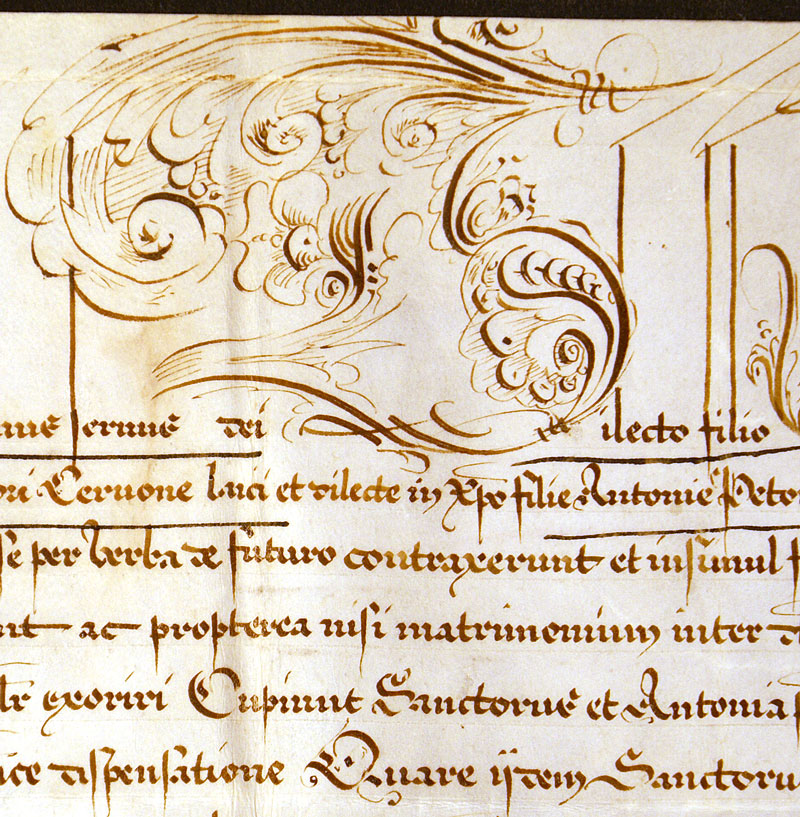 seruus dei Dilecto filio
Ceruone laici et dilecte in Xpo filie Antonie Petr
se per verba de futuro contraxerunt et insimul
ac propterea nisi matrimonium inter
exoriri Cupiunt Sanctorus et Antonia
dispensatione Quare ijdem Sanctorus